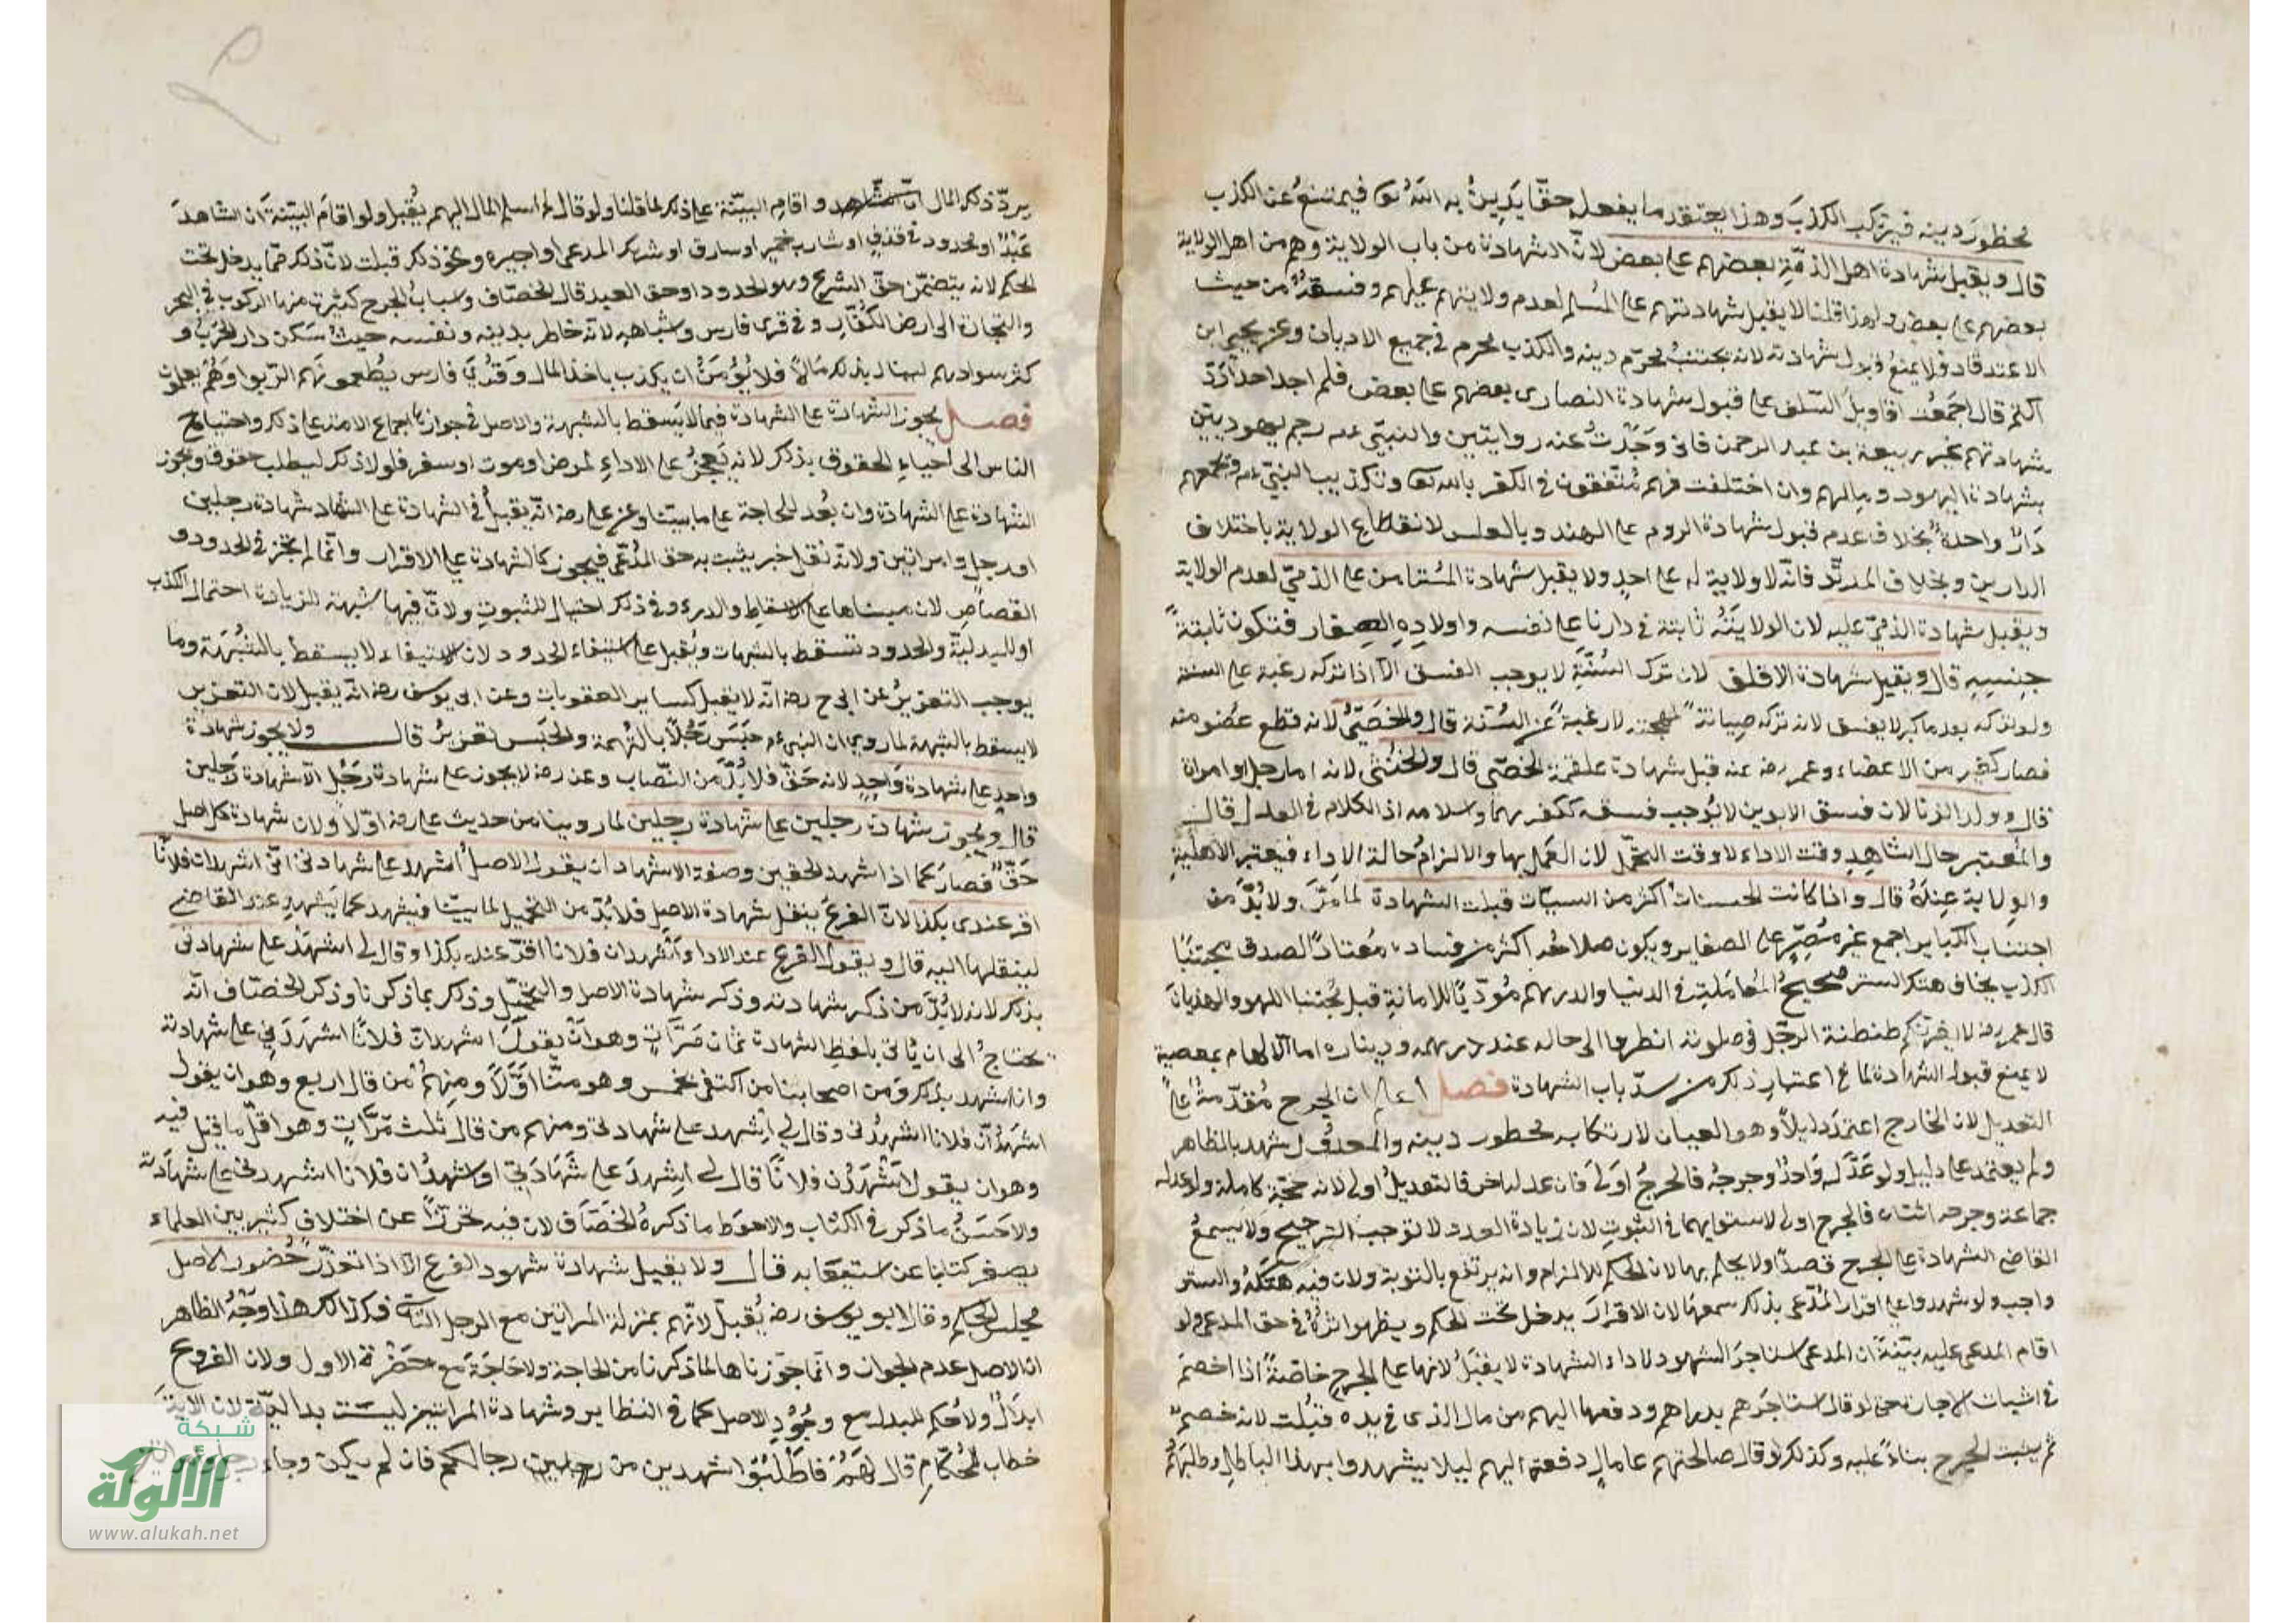 محظور دينه فيرتكب الكذب وهذا يعتقد ما يفعله حقا يدين به الله تع فيمتنع عن الكذب
قال ويقبل شهادة اهل الذمة بعضهم على بعض لان الشهادة من باب الولاية وهم من اهل الولاية
بعضهم على بعض ولهذا قلنا لا يقبل شهادتهم على المسلم لعدم ولايتهم عليهم وفسقه من حيث
الاعتقاد فلا يمنع قبول شهادته لانه يجتنب محرم دينه والكذب محرم في جميع الاديان وعن يحيى ابن
اكثم قال اجمعت اقاويل السلف على قبول شهادة النصارى بعضهم على بعض فلم اجد احدا رد
شهادتهم غير ربيعة بن عبد الرحمن فاني وجدت عنه روايتين والنبي عم رجم يهوديين
بشهادة اليهود وملتهم وان اختلفت فهم متفقون في الكفر بالله تع وتكذيب النبي عم وتجمعهم
دار واحدة بخلاف عدم قبول شهادة الروم على الهند وبالعكس لانقطاع الولاية باختلاف
الدارين وبخلاف المرتد فانه لا ولاية له على احد ولا يقبل شهادة المستامن على الذمي لعدم الولاية
ويقبل شهادة الذمي عليه لان الولاية ثابتة في دارنا على نفسه واولاده الصغار فتكون ثابتة
جنسه قال ويقبل شهادة الاقلف لان ترك السنة لا يوجب الفسق الا اذا تركه رغبة على السنة
ولو تركه بعد ما كبر لا يفسق لانه تركه صيانة لمهجته لا رغبة عن السنة قال والخصي لانه قطع عضو منه
فصار كغيره من الاعضاء وعمر رضه عنه قبل شهادة علقمة الخصي قال والخنثى لانه اما رجل او امراة
قال وولد الزنا لان فسق الابوين لا يوجب فسقه ككفرهما واسلامه اذ الكلام في العدل قال
والمعتبر حال الشاهد وقت الاداء لا وقت التحمل لان العمل بها والالزام حالة الاداء فيعتبر الاهلية
والولاية عنده قال واذا كانت الحسنات اكثر من السيئات قبلت الشهادة لما مر ولا بد من
اجتناب الكباير اجمع غير مصر على الصغاير ويكون صلاحه اكثر من فساده معتادا لصدق مجتنبا
الكذب يخاف هتك الستر صحيح المعاملة في الدنيا والدرهم مؤديا للامانة قبل مجتنبا اللهو والهذيان
قال عمر رضه لا يغرنكم طنطنة الرجل في صلوته انظروا الى حاله عند درهمه وديناره اما الالمام بمعصية
لا يمنع قبول الشهادة لما في اعتبار ذلك من سد باب الشهادة فصل اعلم ان الجرح مقدمة على
التعديل لان الخارج اعتمد دليلا وهو العيان لارتكابه محظور دينه والمعدل شهد بالظاهر
ولم يعتمد على دليل ولو عدله واحد وجرحه فالجرح اولى فان عدله اخر فالتعديل اولى لانه حجة كاملة ولو عدله
جماعة وجرحه اثنان فالجرح اولى لاستوايهما في الثبوت لان زيادة العدد لا توجب الترجيح ولا يسمع
القاضي الشهادة على الجرح قصدا ولا يحكم بهما لان الحكم للالزام وانه يرتفع بالتوبة ولان فيه هتكه والستر
واجب ولو شهدوا على اقرار المدعي بذلك سمعها لان الاقرار يدخل تحت الحكم ويظهر اثره في حق المدعي ولو
اقام المدعى عليه بينة ان المدعي استاجر الشهود لاداء الشهادة لا يقبل لانها على الجرح خاصة اذا خصم
في اثبات الاجارة حتى لو قال استاجرهم بدراهم ودفعها اليهم من مالي الذي في يده قبلت لانه خصم
ثم يثبت الجرح بناء عليه وكذلك لو قال صالحتهم على مال دفعته اليهم ليلا يشهدوا بهذا الباطل وطلبهم
برد ذلك المال واقام البينة على ذلك لما قلنا ولو قال لم اسلم المال اليهم يقبل ولو اقام البينة ان الشاهد
عبد او محدود في قذف او شارب خمر او سارق او شريك المدعي او اجيره ونحو ذلك قبلت لان ذلك مما يدخل تحت
الحكم لانه يتضمن حق الشرع وهو الحدود او حق العبد قال الخصاف واسباب الجرح كثيرة منها الركوب في البحر
والتجارة الى ارض الكفار وفي قرى فارس واشباهه لانه خاطر بدينه ونفسه حيث سكن دار الحرب و
كثر سوادهم لينال بذلك مالا فلا يؤمن ان يكذب باخذ المال وقرى فارس يطعمونهم الربوا وهم يعلمون
فصل يجوز الشهادة على الشهادة فيما لا يسقط بالشبهة والاصل في جوازها اجماع الامة على ذلك واحتياج
الناس الى احياء الحقوق بذلك لانه يعجز على الاداء لمرض او موت او سفر فلولا ذلك ليطلب حقوق ويجوز
الشهادة على الشهادة وان بعد للحاجة على ما بينا وعن علي رضه انه يقبل في الشهادة على الشهاد شهادة رجلين
او رجل وامراتين ولانه نقل خبر يثبت به حق المدعي فيجوز كالشهادة على الاقرار وانما لم يجز في الحدود و
القصاص لان مبناها على الاسقاط والدرء وفي ذلك احتيال للثبوت ولان فيها شبهة للزيادة احتمال الكذب
او للبدلية والحدود تسقط بالشبهات ويقبل على استيفاء الحدود لان الاستيفاء لا يسقط بالشبهة وما
يوجب التعزير عن ابي ح رضه انه لا يقبل كساير العقوبات وعن ابي يوسف رضه انه يقبل لان التعزير
لا يسقط بالشبهة لما روي ان النبي عم حبس رجلا بالتهمة والحبس تعزير قال ولا يجوز شهادة
واحد على شهادة واحد لانه حق فلا بد من النصاب وعن رضه لا يجوز على شهادة رجل الا شهادة رجلين
قال ويجوز شهادة رجلين على شهادة رجلين لما روينا من حديث علي رضه اولا ولان شهادة كل اصل
حق فصار كما اذا شهد الحقين وصفة الاشهاد ان يقول الاصل اشهد على شهادتي اني اشهد ان فلانا
اقر عندي بكذا لان الفرع ينقل شهادة الاصل فلا بد من التحميل لما بينا فيشهد كما يشهد عند القاضي
لينقلها اليه قال ويقول الفرع عند الادا واشهد ان فلانا اقر عنده بكذا وقال لي اشهد على شهادتي
بذلك لانه لا بد من ذكر شهادته وذكر شهادة الاصل والتحميل وذلك بما ذكرنا وذكر الخصاف انه
يحتاج الى ان ياتي بلفظ الشهادة ثمان مرات وهو ان يقول اشهد ان فلانا اشهدني على شهادته
وانا اشهد بذلك ومن اصحابنا من اكتفى بخمس وهو متنا اولا ومنهم من قال اربع وهو ان يقول
اشهد ان فلانا اشهدني وقال لي اشهد على شهادتي ومنهم من قال ثلث مرات وهو اقل ما قيل فيه
وهو ان يقول اشهد ان فلانا قال لي اشهد على شهادتي او اشهد ان فلانا اشهدني على شهادته
والاحسن ما ذكر في الكتاب والاحوط ما ذكره الخصاف لان فيه تحرزا عن اختلاف كثير بين العلماء
يصغر كتابنا عن استيعابه قال ولا يقبل شهادة شهود الفرع الا اذا تعذر حضور الاصل
مجلس الحكم وقال ابو يوسف رضه يقبل لانهم بمنزلة المراتين مع الرجل الثاني فكذلك هذا وجه الظاهر
ان الاصل عدم الجواز وانما جوزناها لما ذكرنا من الحاجة ولا حاجة مع حضرة الاول ولان الفروع
ابدال ولا حكم للبدل مع وجود الاصل كما في النظاير وشهادة المراتين ليست بدالية لان الاية
خطاب للحكام قال لهم فاطلبوا شهدين من رجالكم فان لم يكن وجاء رجل وامراتين
شبكة
الألوكة
www.alukah.net